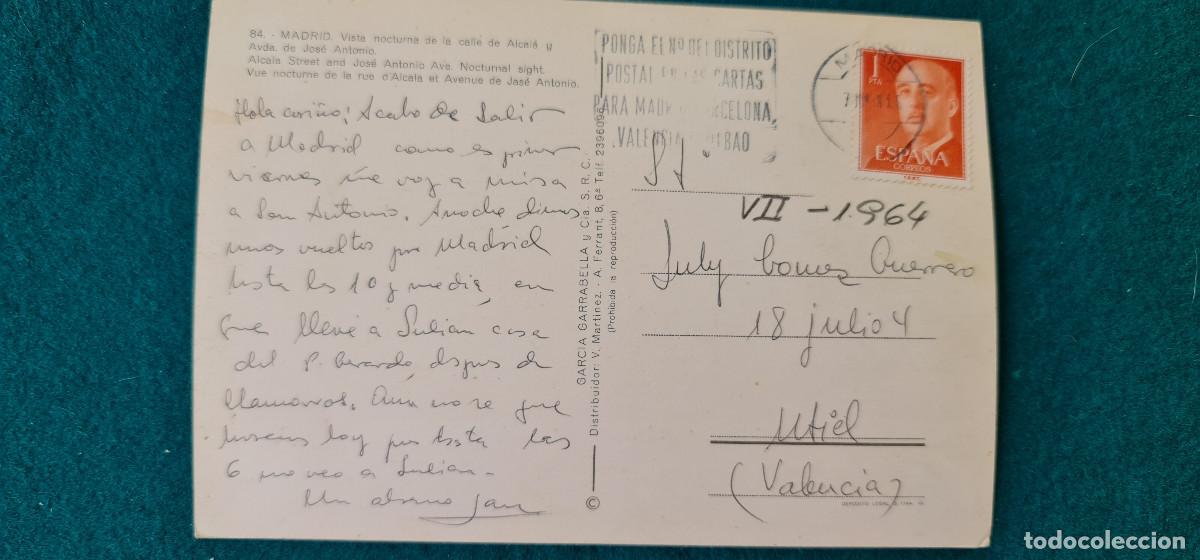 84. - MADRID. Vista nocturna de la calle de Alcalá y
Avda. de José Antonio.
Alcala Street and José Antonio Ave. Nocturnal sight.
Vue nocturne de la rue d'Alcala et Avenue de Jasé Antonio.
¡Hola cariño! Acabo de salir
a Madrid como es primer
viernes me voy a misa
a San Antonio. Anoche dimos
unos vueltos por Madrid
hasta las 10 y media, en
que llevé a Julian casa
del P. Gerardo, dspus de
llamarros. Aun no se que
haremos hoy pus hasta las
6 no veo a Julian -
Un abrazo
GARCIA GARRABELLA y Cía. S. R. C.
Distribuidor: V. Martínez. - A. Ferrant, 8, 6º Telf. 2396096
(Prohibida la reproducción)
©
PONGA EL Nº DEL DISTRITO
POSTAL EN LAS CARTAS
PARA MADRID BARCELONA,
VALENCIA BILBAO
MADRID
1
PTA
ESPAÑA
CORREOS
VII - 1.964
July Gomez Guerrero
18 julio 4
Utiel
(Valencia)
DEPÓSITO LEGAL B.
todocoleccion